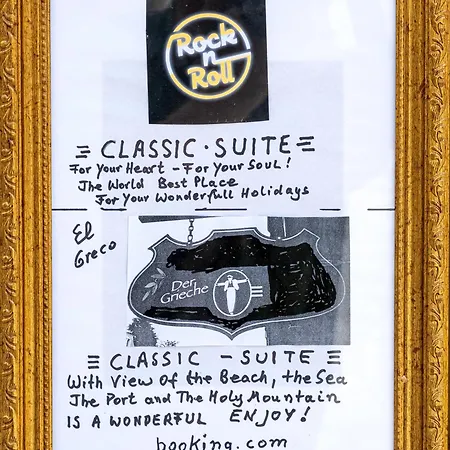 Rock
n
Roll
≡ CLASSIC · SUITE ≡
For Your Heart - For Your Soul!
The World Best Place
For Your Wonderfull Holidays
El
Greco
Der
Grieche
≡ CLASSIC - SUITE ≡
With View Of the Beach, the Sea
The Port and The Holy Mountain
IS A WONDERFUL ENJOY!
booking.com